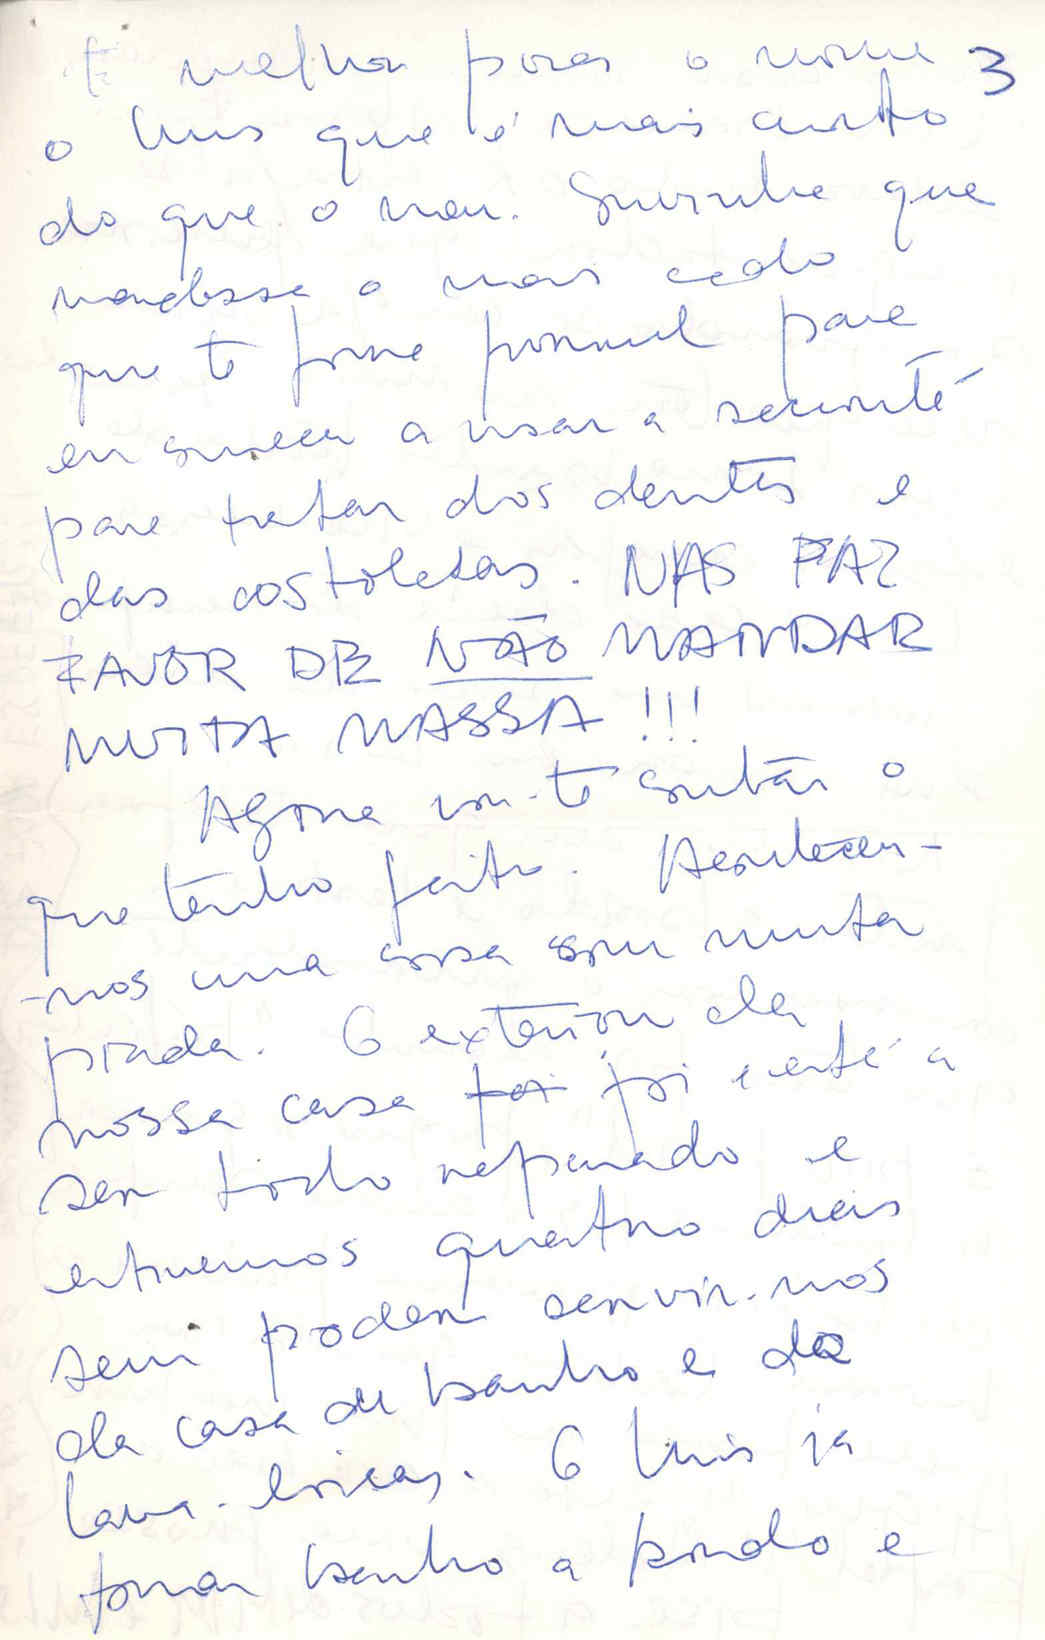 3
É melhor pores o nome
o Luis que é mais curto
do que o meu. Convinha que
mandasse o mais cedo
que te fosse possivel para
eu começar a usar a securité
para tratar dos dentes e
das costoletas. MAS FAZ
FAVOR DE NÃO MANDAR
MUITA MASSA!!!
Agora vou-te contar o
que tenho feito. Aconteceu-
-nos uma coisa com muita
piada. O exterior da
nossa casa foi foi e está a
ser todo reparado e
estivemos quatro dias
sem poder servir-nos
da casa de banho e do
lava-loiças. O Luis ia
tomar banho a e